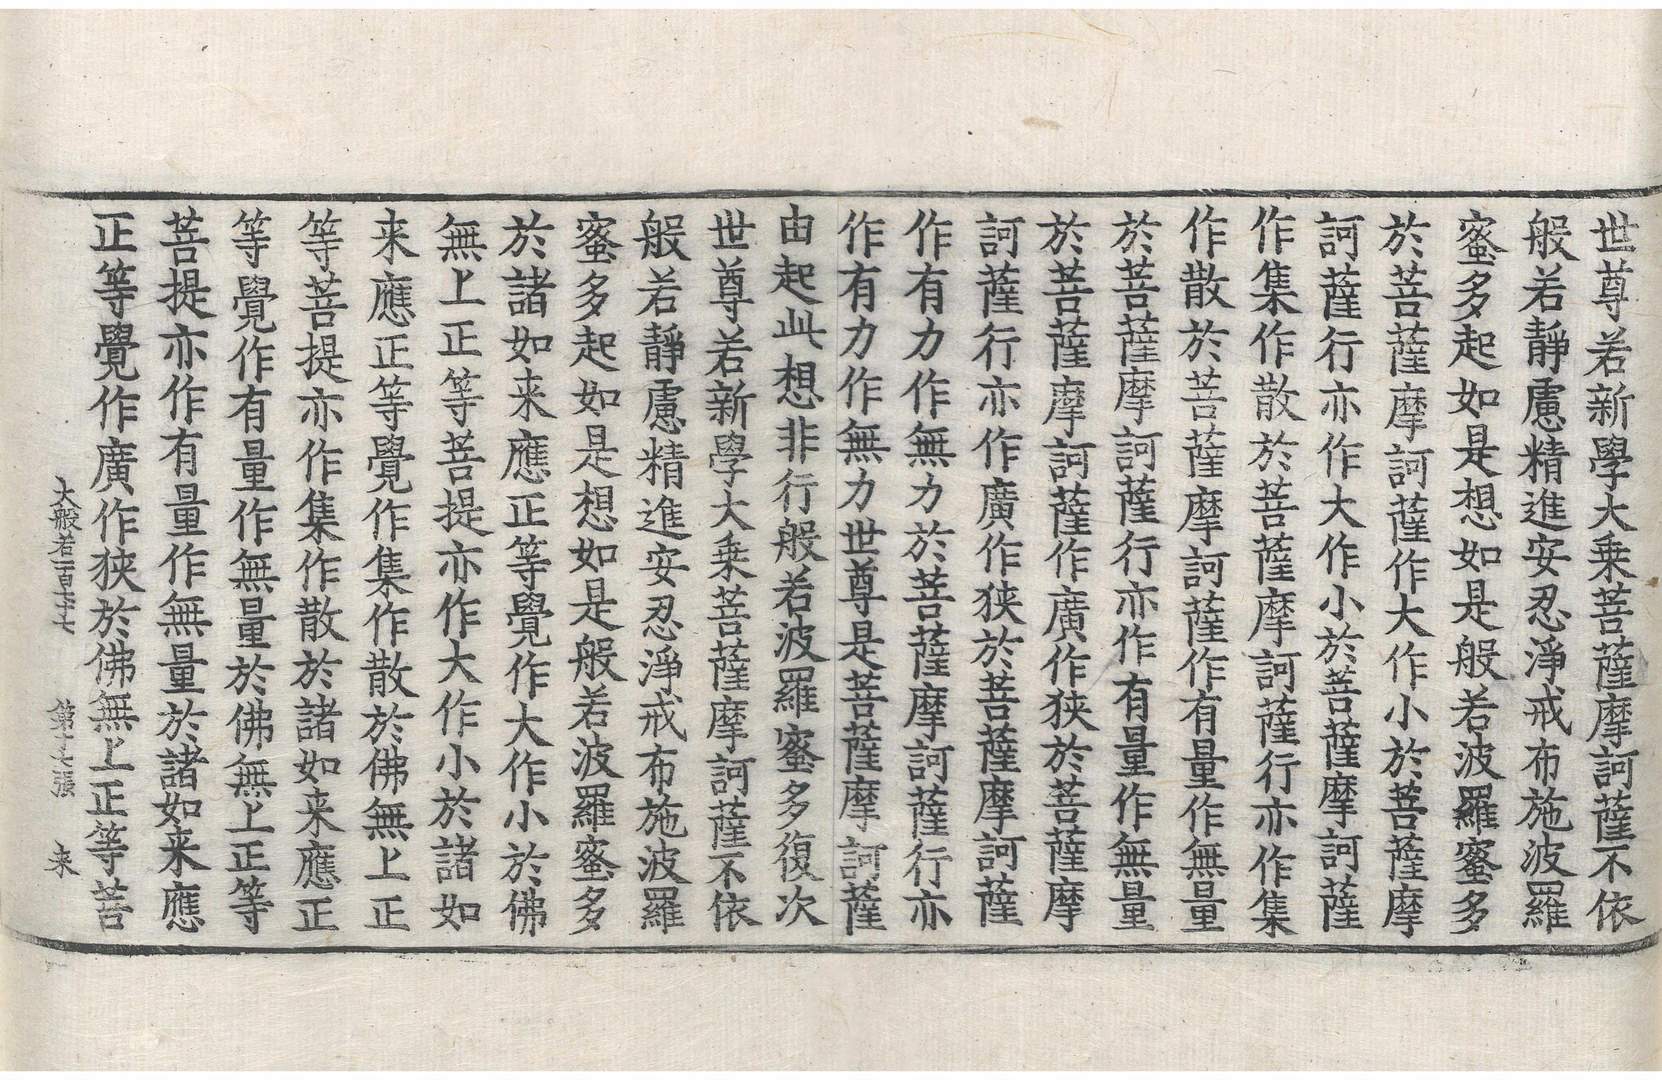 世尊若新學大乗菩薩摩訶薩不依
般若靜慮精進安忍淨戒布施波羅
蜜多起如是想如是般若波羅蜜多
於菩薩摩訶薩作大作小於菩薩摩
訶薩行亦作大作小於菩薩摩訶薩
作集作散於菩薩摩訶薩行亦作集
作散於菩薩摩訶薩作有量作無量
於菩薩摩訶薩行亦作有量作無量
於菩薩摩訶薩作廣作狭於菩薩摩
訶薩行亦作廣作狭於菩薩摩訶薩
作有力作無力於菩薩摩訶薩行亦
作有力作無力世尊是菩薩摩訶薩
由起此想非行般若波羅蜜多復次
世尊若新學大乗菩薩摩訶薩不依
般若靜慮精進安忍淨戒布施波羅
蜜多起如是想如是般若波羅蜜多
於諸如来應正等覺作大作小於佛
無上正等菩提亦作大作小於諸如
来應正等覺作集作散於佛無上正
等菩提亦作集作散於諸如来應正
等覺作有量作無量於佛無上正等
菩提亦作有量作無量於諸如来應
正等覺作廣作狭於佛無上正等菩
大般若一百七十七 第十七張 来